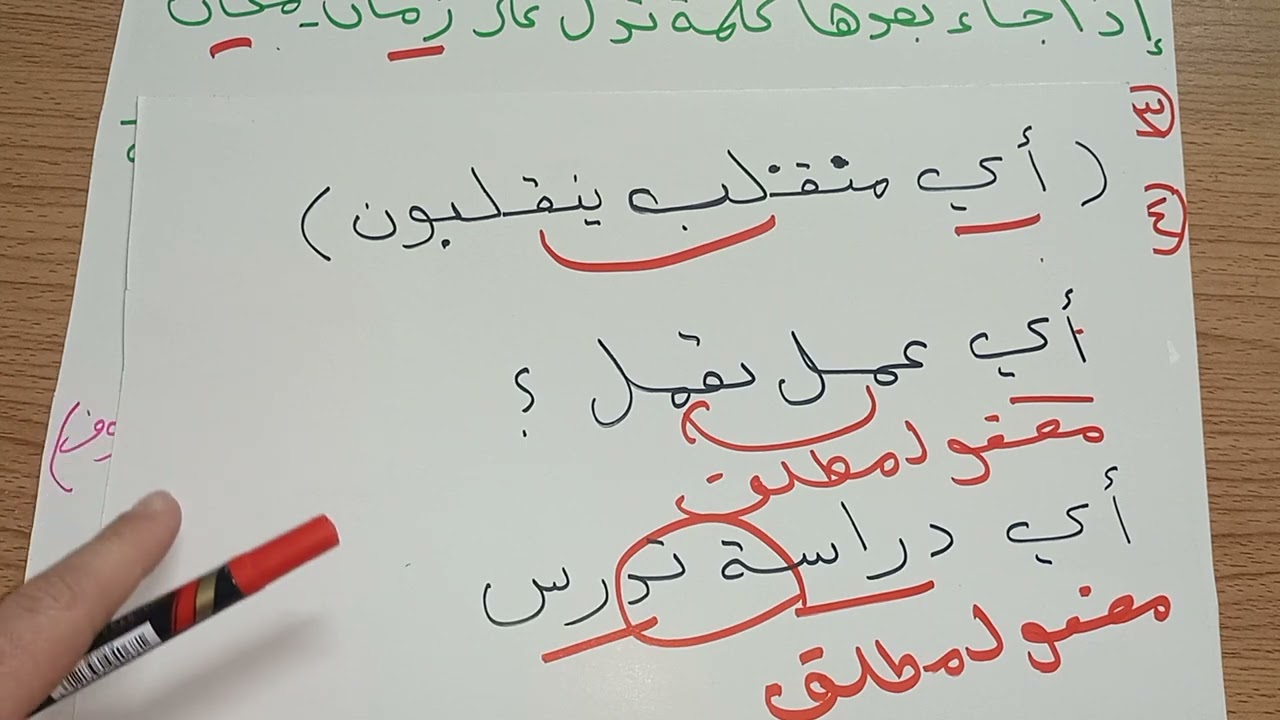 إذا جاء بعدها كلمة تدل على زمان - مكان
٣
٤
( أي منقلب ينقلبون )
أي عمل تعمل ؟
مفعول مطلق
أي دراسة تدرس
مفعول مطلق